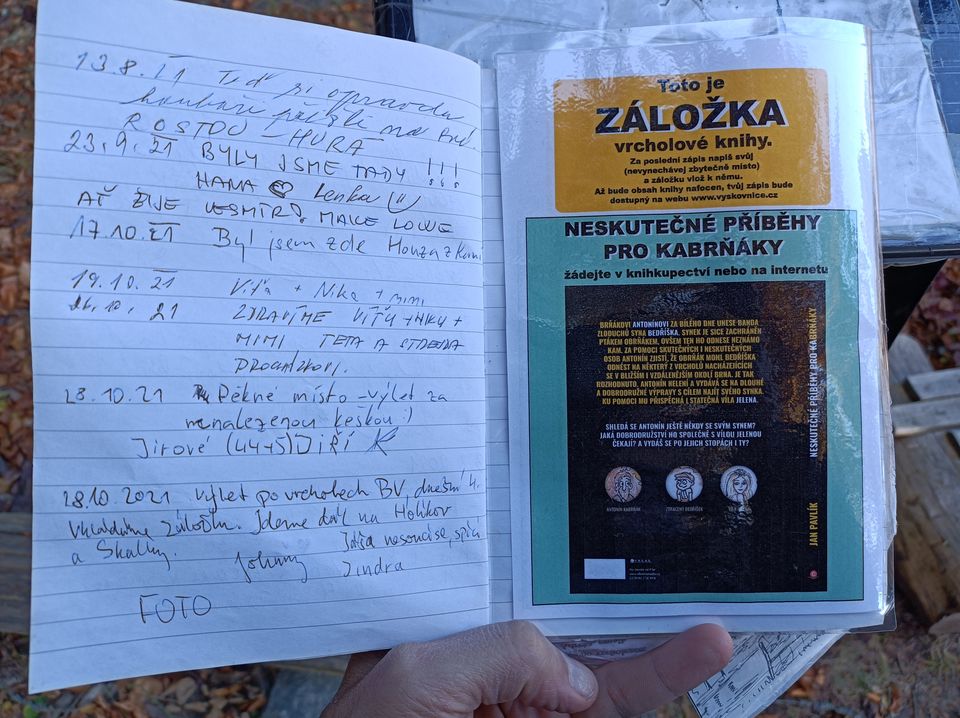 13.8.21 Teď si opravdu
houbaři přišli na
ROSTOU - HURÁ
23.9.21 BYLY JSME TADY !!!
HANA Lenka
AŤ ŽIJE VESMÍR
17.10.21 Byl jsem zde Honza z
19.10.21 Víťa + Nika + mimi
21.10.21 ZDRAVÍME VÍŤU + NIKU +
MIMI TETA A STREJDA
28.10.21 Pěkné místo - výlet za
nenalezenou keškou!
Jírové (44+5) JIŘÍ
28.10.2021 výlet po vrcholech BV, dnešní 4.
Vkládáme záložku. Jdeme dál na Holíkov
a Skalky. Jája nesoutěží, spí
Johnny Jindra
FOTO
Toto je
ZÁLOŽKA
vrcholové knihy.
Za poslední zápis napiš svůj
(nevynechávej zbytečně místo)
a záložku vlož k němu.
Až bude obsah knihy nafocen, tvůj zápis bude
dostupný na webu www.vyskovnice.cz
NESKUTEČNÉ PŘÍBĚHY
PRO KABRŇÁKY
žádejte v knihkupectví nebo na internetu
BRŇÁKOVI ANTONÍNOVI ZA BÍLÉHO DNE UNESE BANDA
ZLODUCHŮ SYNA BEDŘÍŠKA. SYNEK JE SICE ZACHRÁNĚN
PTÁKEM OBRŇÁKEM, OVŠEM TEN HO ODNESE NEZNÁMO
KAM. ZA POMOCI SKUTEČNÝCH I NESKUTEČNÝCH
OSOB ANTONÍN ZJISTÍ, ŽE OBRŇÁK MOHL BEDŘÍŠKA
ODNÉST NA NĚKTERÝ Z VRCHOLŮ NACHÁZEJÍCÍCH
SE V BLIŽŠÍM I VZDÁLENĚJŠÍM OKOLÍ BRNA. JE TAK
ROZHODNUTO, ANTONÍN NELENÍ A VYDÁVÁ SE NA DLOUHÉ
A DOBRODRUŽNÉ VÝPRAVY S CÍLEM NAJÍT SVÉHO SYNKA.
KU POMOCI MU PŘISPĚCHÁ I STATEČNÁ VÍLA JELENA.
SHLEDÁ SE ANTONÍN JEŠTĚ NĚKDY SE SVÝM SYNEM?
JAKÁ DOBRODRUŽSTVÍ HO SPOLEČNĚ S VÍLOU JELENOU
ČEKAJÍ? A VYDÁŠ SE PO JEJICH STOPÁCH I TY?
ANTONÍN KABRŇÁK
ZTRACENÝ BEDŘÍŠEK
JAN PAVLÍK
NESKUTEČNÉ PŘÍBĚHY PRO KABRŇÁKY